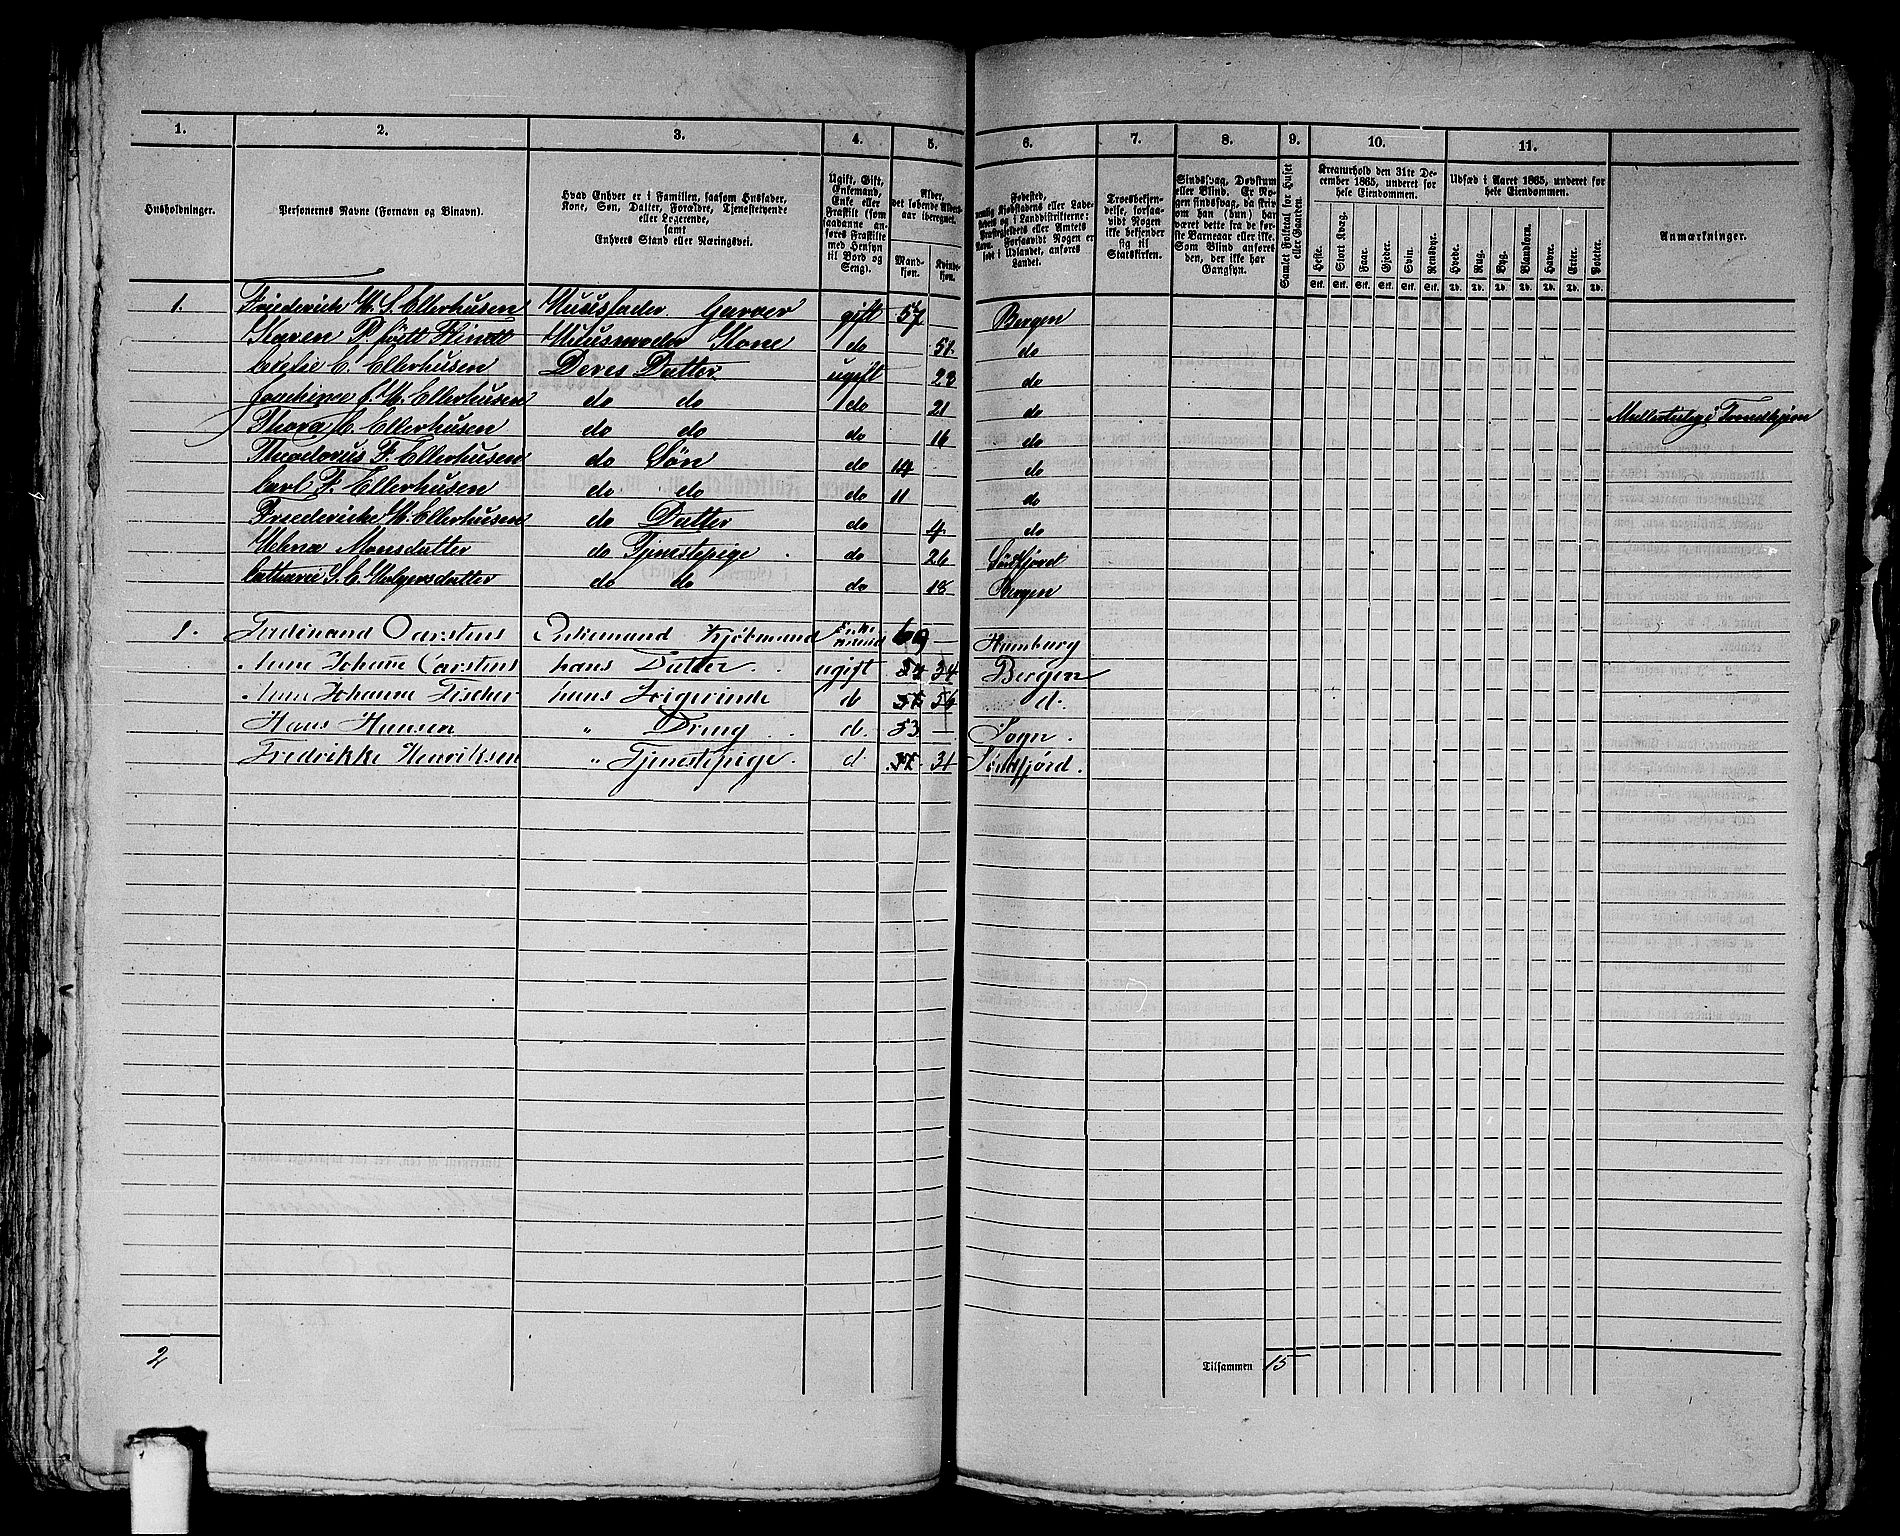 1. 2. 3. 4. 5. 6. 7. 8. 9. 10. 11.
Husholdninger.
Personernes Navne (Fornavn og Binavn).
Hvad Enhver er i Familien, saasom Husfader, Kone, Søn, Datter, Forældre, Tjenestetyende eller Logerende, samt Enhvers Stand eller Næringsvei.
Ugift, Gift, Enkemand, Enke eller Fraskilt (som saadanne anføres Fraskilte med Hensyn til Bord og Seng).
Alder, det løbende Alders-aar iberegnet.
Mand-kjøn. Kvinde-kjøn.
Fødested, nemlig Kjøbstadens eller Ladestedets og i Landdistrikterne: Præstegjeldets eller Amtets Navn. Forsaavidt Nogen er født i Udlandet, anføres Landet.
Troesbekjendelse, forsaavidt Nogen ikke bekjender sig til Statskirken.
Sindssvag, Døvstum eller Blind. Er Nogen sindssvag, da skriv om han (hun) har været dette fra de første Barneaar eller ikke. Som Blind anføres den, der ikke har Gangsyn.
Samlet Folketal for Huset eller Gaarden.
Kreaturhold den 31te December 1865, underet for hele Eiendommen.
Heste. Stort Kvæg. Faar. Gjeder. Svin. Rensdyr.
Stk. Stk. Stk. Stk. Stk. Stk.
Udsæd i Aaret 1865, underet for hele Eiendommen.
Hvede. Rug. Byg. Blandkorn. Havre. Erter. Poteter.
Td. Td. Td. Td. Td. Td. Td.
Anmærkninger.
1. Friederich W. S. Ellerhusen Huusfader Garver gift 57 Bergen
Karen P. født Flindt Huusmoder Kone do 51 do
C. Ellerhusen Deres Datter ugift 23 do
Joachime J. M. Ellerhusen do do do 21 do Trondhjem
Thora C. Ellerhusen do do do 16 do
Theodorus F. Ellerhusen do Søn do 14 do
Carl F. Ellerhusen do do do 11 do
Friederiche M. Ellerhusen do Datter do 4 do
Helena Monsdatter do Tjenestepige do 26 Søndfjord
Cathrine S. C. Holgersdatter do do do 18 Bergen
1. Ferdinand Carstens Enkemand Kjøbmand Enkemand 69 — Hamburg
Anne Johane Carstens hans Datter ugift 34 Bergen
Anne Johanne Fischer hans Svigerinde d 56 d.
Hans Hansen " Dreng d. 53 — Sogn.
Fredrikke Henriksen " Tjenestepige. d. 31 Søndfjord.
2 Tilsammen 15